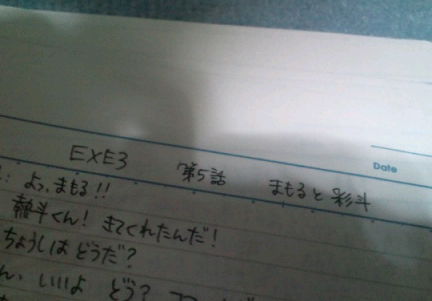 Date
EXE3 第5話 まもると彩斗
: よっ、まもる!!
熱斗くん! きてくれたんだ!
ちょうしはどうだ?
ん、いいよ どう?